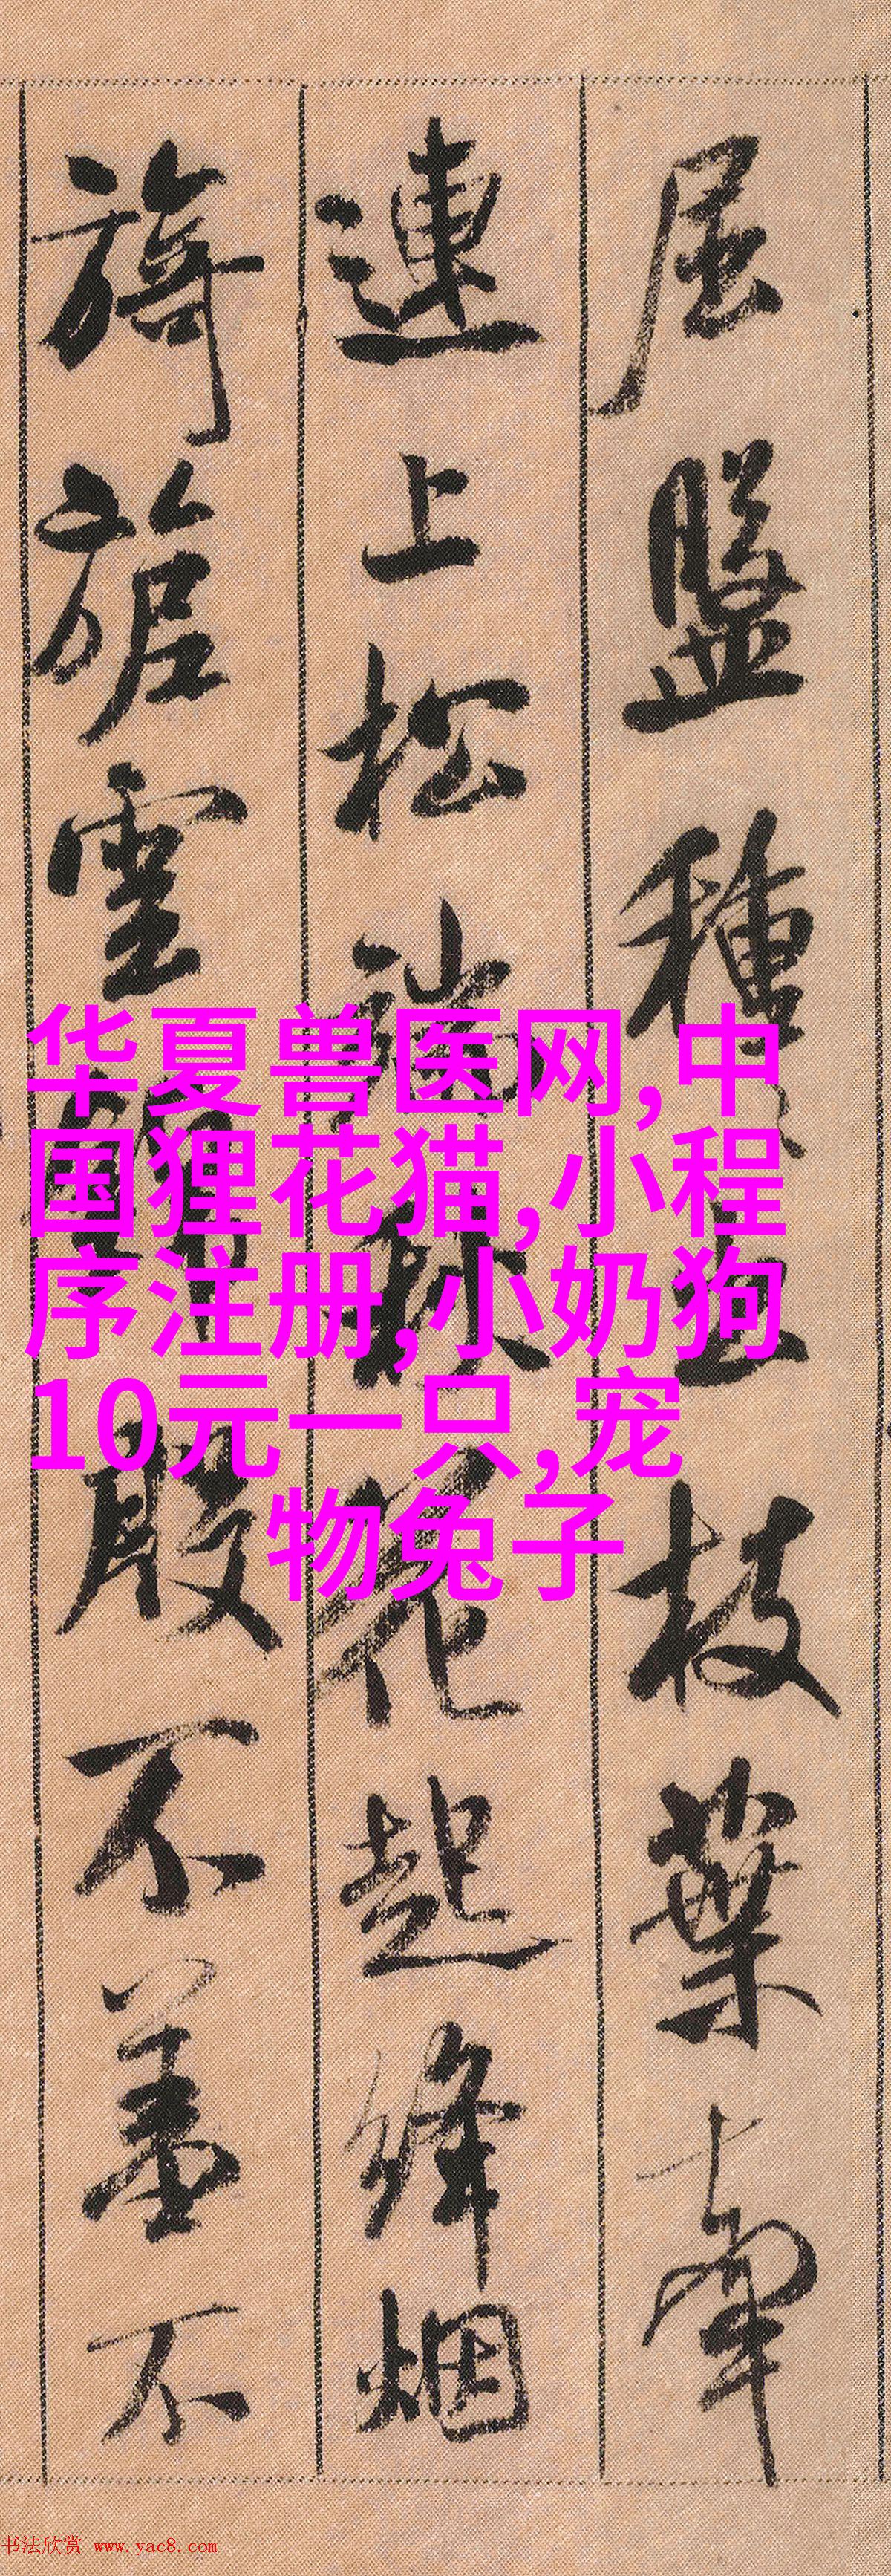 屈盤種種生枝葉牽
連上松端秋花起絳烟
旖旎雲錦殷不羞不
华夏兽医网,中
国狸花猫,小程
序注册,小奶狗
10元一只,宠
物兔子
书法欣赏 www.yac8.com